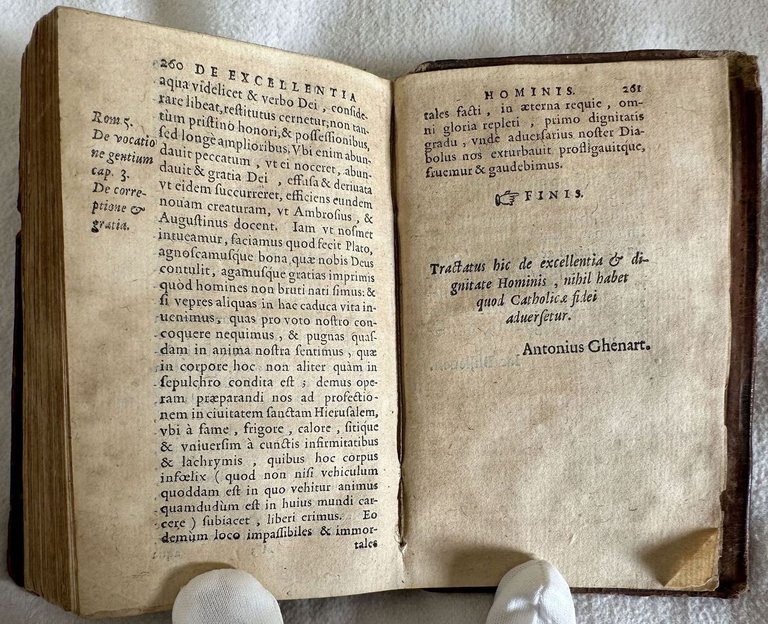 260 DE EXCELLENTIA
aqua videlicet & verbo Dei, conside-
rare libeat, restitutus cernetur, non tan-
tùm pristino honori, & possessionibus,
sed longè amplioribus. Vbi enim abun-
dauit peccatum, vt ei noceret, abun-
dauit & gratia Dei, effusa & deriuata
vt eidem succurreret, efficiens eundem
nouam creaturam, vt Ambrosius, &
Augustinus docent. Iam vt nosmet
intueamur, faciamus quod fecit Plato,
agnoscamusque bona, quæ nobis Deus
contulit, agamusque gratias imprimis
quòd homines non bruti nati simus: &
si vepres aliquas in hac caduca vita in-
uenimus, quas pro voto nostro con-
coquere nequimus, & pugnas quas-
dam in anima nostra sentimus, quæ
in corpore hoc non aliter quàm in
sepulchro condita est; demus ope-
ram præparandi nos ad profectio-
nem in ciuitatem sanctam Hierusalem,
vbi à fame, frigore, calore, sitique
& vniuersim à cunctis infirmitatibus
& lachrymis, quibus hoc corpus
infœlix (quod non nisi vehiculum
quoddam est in quo vehitur animus
quamdudum est in huius mundi car-
cere) subiacet, liberi erimus. Eo
demum loco impassibiles & immor-
tales
Rom 5.
De vocatio
ne gentium
cap. 3.
De corre-
ptione &
gratia.
HOMINIS. 261
tales facti, in æterna requie, om-
ni gloria repleti, primo dignitatis
gradu, vnde aduersarius noster Dia-
bolus nos exturbauit profligauitque,
fruemur & gaudebimus.
☞ FINIS.
Tractatus hic de excellentia & di-
gnitate Hominis, nihil habet
quod Catholicæ fidei
aduersetur.
Antonius Ghenart.